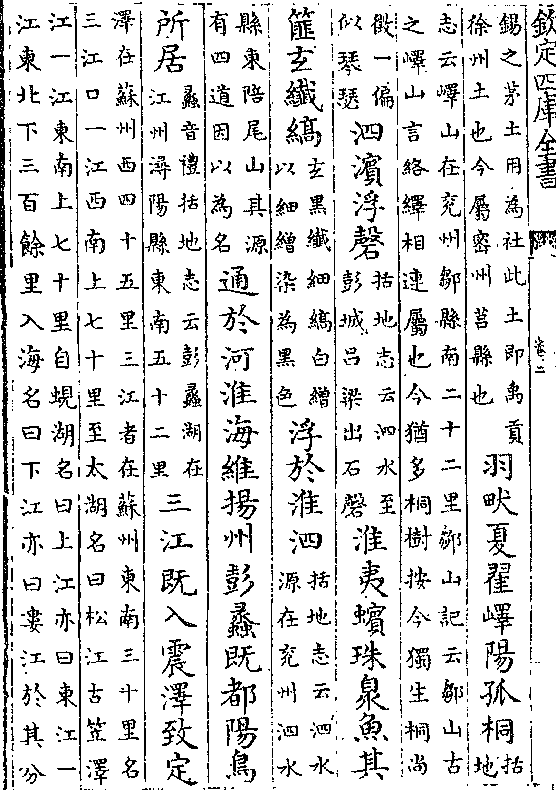 欽定四庫全書
卷二
錫之茅土用為社此土即禹貢
徐州土也今屬密州莒縣也
羽畎夏翟嶧陽孤桐
括地
志云嶧山在兗州鄒縣南二十二里鄒山記云鄒山古
之嶧山言絡繹相連屬也今猶多桐樹按今獨生桐尚
徵一偏
似琴瑟
泗濱浮磬
括地志云泗水至
彭城呂梁出石磬
淮夷蠙珠臮魚其
篚玄纖縞
玄黑纖細縞白繒
以細繒染為黑色
浮於淮泗
括地志云泗水
源在兗州泗水
縣東陪尾山其源
有四道因以為名
通於河淮海維揚州彭蠡既都陽鳥
所居
蠡音禮括地志云彭蠡湖在
江州潯陽縣東南五十二里
三江既入震澤致定
澤在蘇州西四十五里三江者在蘇州東南三十里名
三江口一江西南上七十里至太湖名曰松江古笠澤
江一江東南上七十里自蜆湖名曰上江亦曰東江一
江東北下三百餘里入海名曰下江亦曰婁江於其分